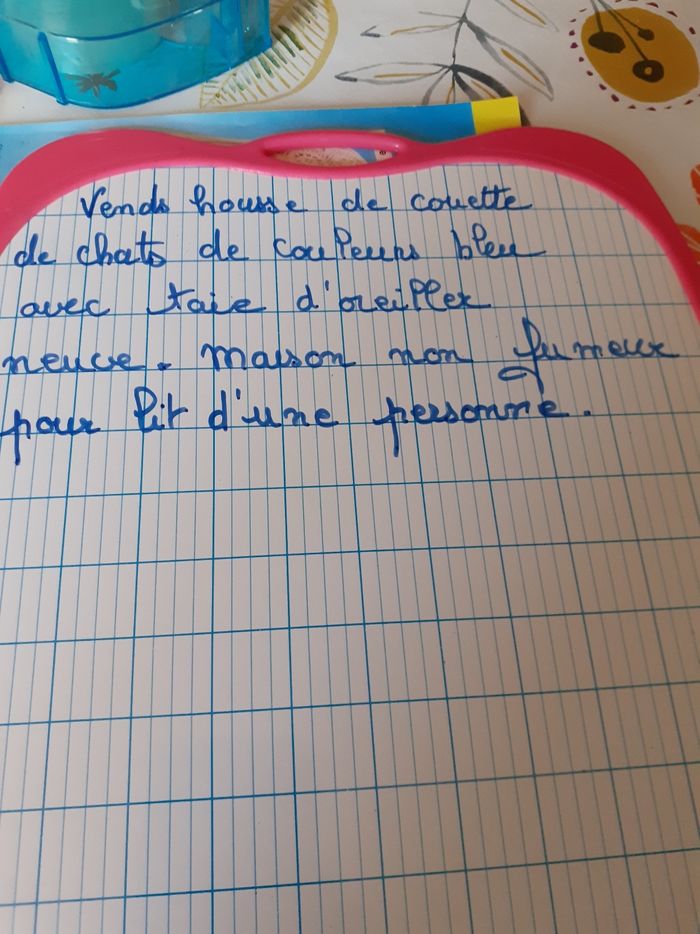 Vends housse de couette
de chats de couleurs bleu
avec taie d'oreiller
neuve. maison non fumeur
pour lit d'une personne.